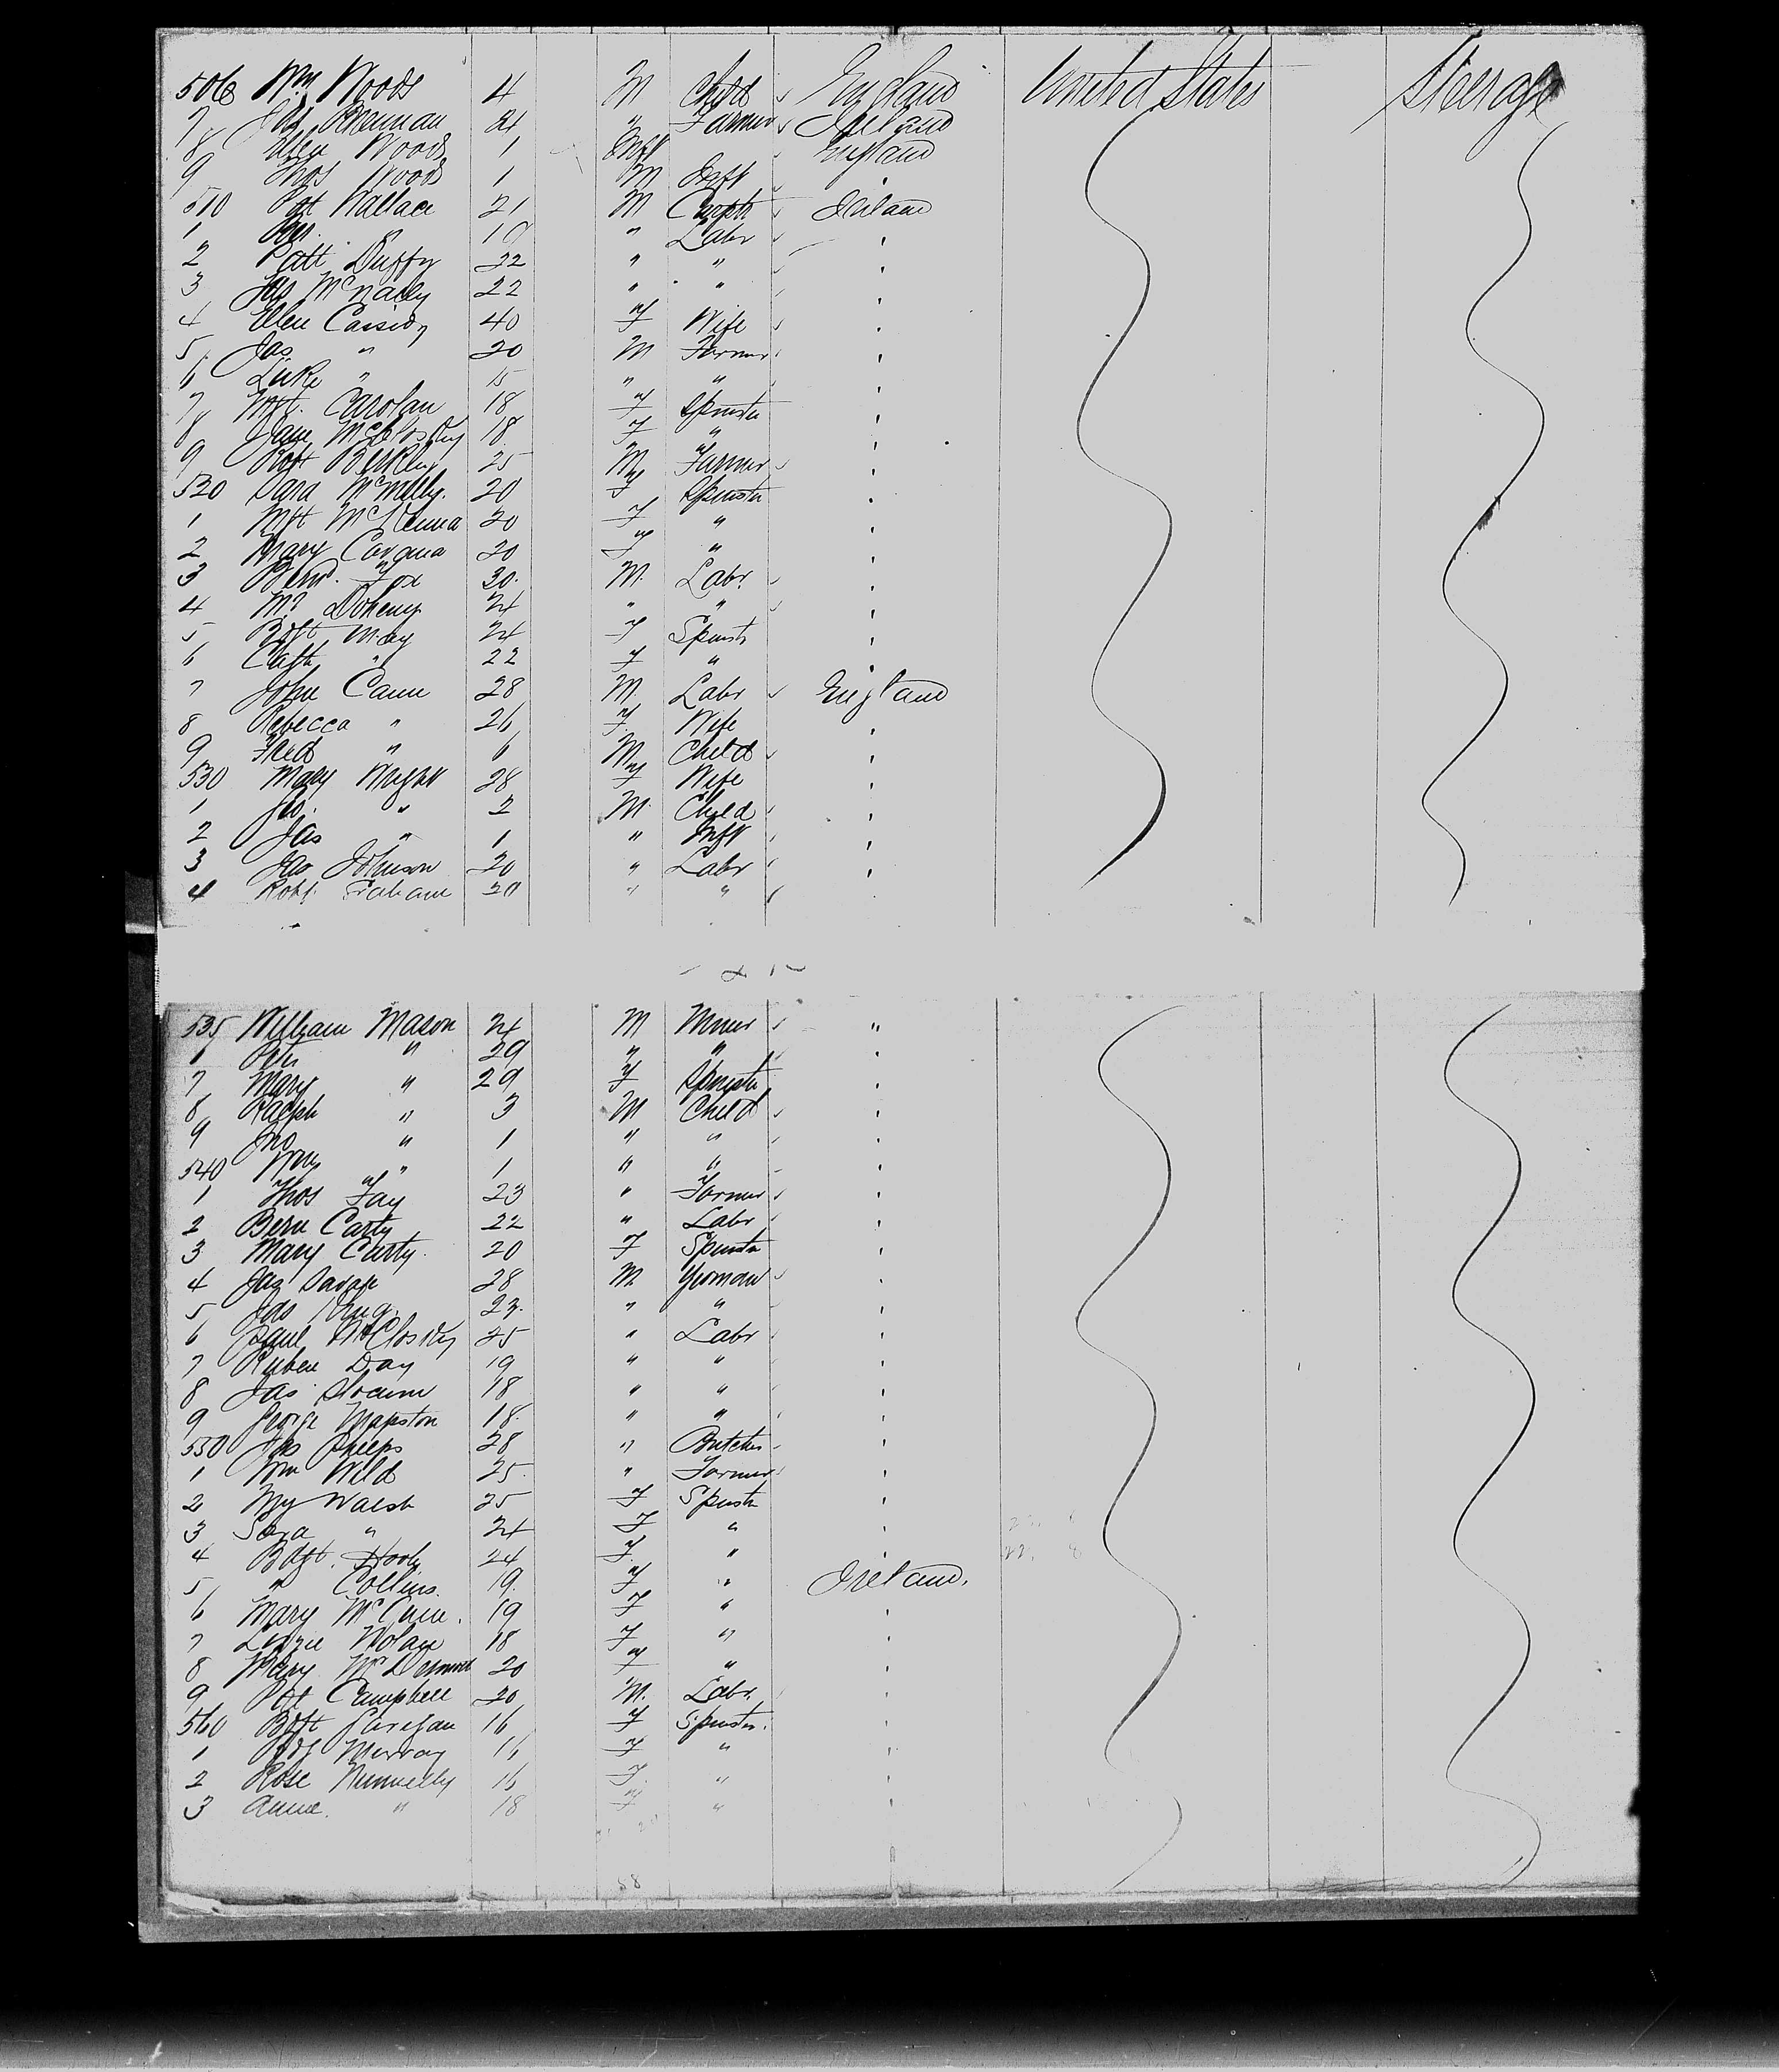 506 Wm Woods 4 M Child England United States Steerage
7 Jas Brennan 21 " Farmer Ireland
8 Ellen Woods 1 Inft England
9 Thos Woods 1 M Inft "
510 Pat Wallace 21 M Carptr Ireland
1 19 " Labr "
2 Patt Duffy 22 " " "
3 Jas McNally 22 " " "
4 Ellen Cassidy 40 F Wife "
5 Jas " 20 M Farmer "
6 Luke " 15 " " "
7 Mgt. Carolan 18 F Spinstr "
8 Jane McClosky 18 F " "
9 25 M Farmer "
520 Sara McNully 20 F Spinstr "
1 Mgt McKenna 20 F " "
2 Mary Cavana 20 F " "
3 Bernd. Fox 30 M. Labr "
4 Ml Doheny 24 " " "
5 Bgt May 24 F Spinstr "
6 Cath " 22 F " "
7 John Cann 28 M. Labr England
8 Rebecca " 26 F. Wife "
9 Fred " 6 M Child "
530 Mary Wright 28 F Wife "
1 " 2 M Child "
2 Jas " 1 " Inft "
3 Jas Johnson 20 " Labr "
4 Robt. Graham 20 " "
535 William Mason 24 M Miner "
6 Peter " 29 " " "
7 Mary " 29 F Spinstr "
8 Ralph " 3 M Child "
9 Jno " 1 " " "
540 Wm " 1 " " "
1 Thos Fay 23 " Farmer "
2 Bern Carty 22 " Labr "
3 Mary Carty. 20 F Spinstr "
4 Jas Savage 28 M Yeoman "
5 Jas King 23. " " "
6 Paul McClosky 25 " Labr "
7 Ruben Day 19 " " "
8 Jas Slocum 18 " " "
9 George Mapston 18 " " "
550 Jas Phelps 28 " Butcher "
1 Wm Wild 25 " Farmer "
2 My Walsh 25 F Spinstr "
3 Sara " 24 F " "
4 Bdgt. 24 F. " "
5 " Collins. 19. F " Ireland.
6 Mary McCue. 19 F " "
7 Lizzie Nolan 18 F " "
8 Mary McDermot 20 F " "
9 Pat Campbell 20 M. Labr. "
560 Bgt 16 F Spinstr. "
1 Murray 16 F " "
2 Rose Nunnelly 16 F. " "
3 Anne. " 18 F " "